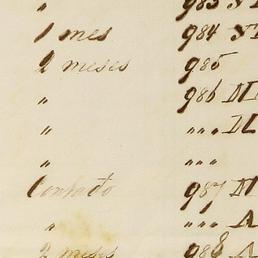 " 983
1 mes 984
2 meses 985
" 986 M
" " " "
" " " "
Contado 987 M
" " " " A
2 meses 988 A